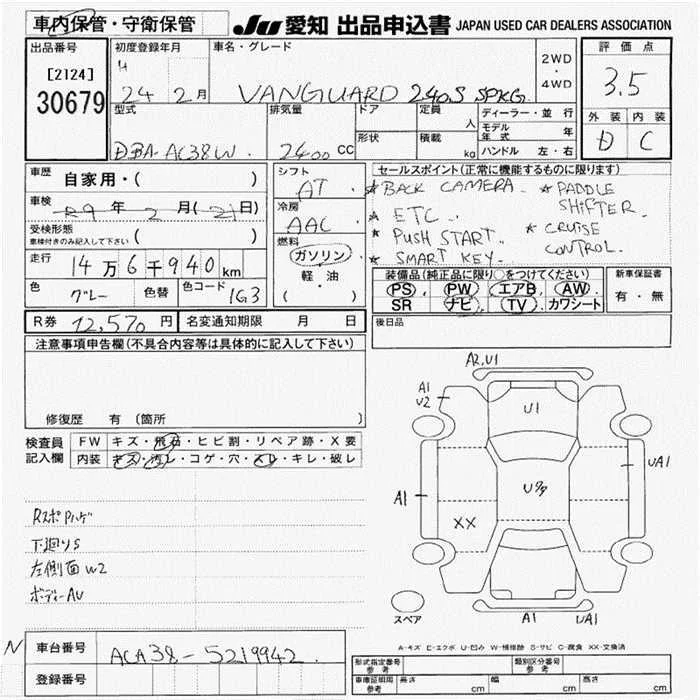 車内保管・守衛保管
JU 愛知 出品申込書 JAPAN USED CAR DEALERS ASSOCIATION
出品番号
[2124]
30679
初度登録年月
H 24 2月
車名・グレード
VANGUARD 240S SPKG
2WD
・
4WD
評価点
3.5
外装 内装
D C
型式
DBA-ACA38W
排気量
2400 CC
ドア
形状
定員 人
積載 kg
ディーラー・並行
モデル年式 年
ハンドル 左・右
車歴
自家用・( )
車検
R9年 2月(21日)
受検形態
車検付きのみ記入して下さい ( )
走行
14万6千940km
色
グレー
色替
色コード 1G3
シフト
AT
冷房
AAC
燃料
ガソリン
軽・油
( )
セールスポイント(正常に機能するものに限ります)
★BACK CAMERA. ★PADDLE SHIFTER.
★ETC.. ★CRUISE CONTROL.
★PUSH START.
★SMART KEY.
装備品(純正品に限り○をつけてください)
PS PW エアB AW
SR ナビ TV カワシート
新車保証書
有・無
R券 12,570円
名変通知期限 月 日
後日品
注意事項申告欄(不具合内容等は具体的に記入して下さい)
修復歴 有 (箇所 )
検査員記入欄
FW キズ・飛石・ヒビ割・リペア跡・X要
内装 キズ・汚レ・コゲ・穴・スレ・キレ・破レ
RスポPハゲ
下廻りS
左側面W2
ボディーAU
A2,U1
A1
U2
U1
A1
UA1
XX
スペア
A1
UA1
A-キズ E-エクボ U-凹み W-補修跡 S-サビ C-腐食 XX-交換済
N
車台番号 ACA38-5219942
登録番号
形式指定番号
参考
類別区分番号
参考
車庫証明用
参考
長さ cm 幅 cm 高さ cm